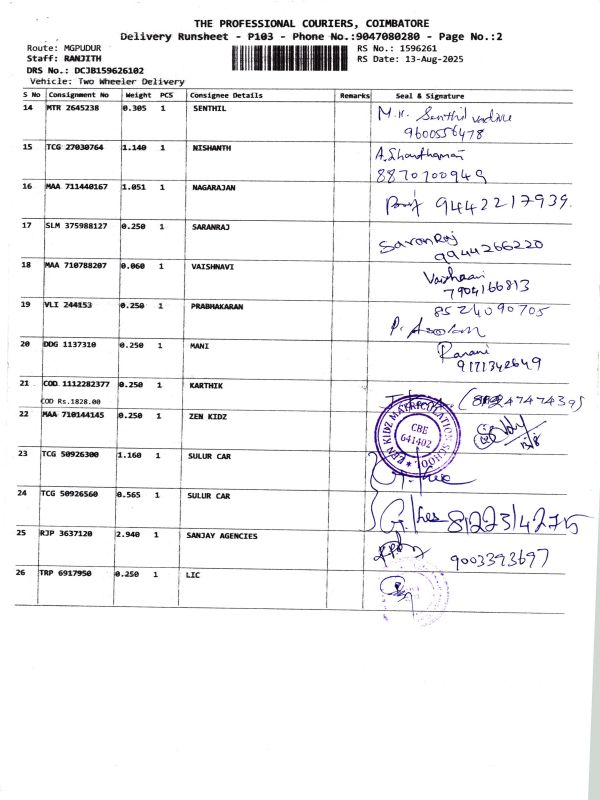 THE PROFESSIONAL COURIERS, COIMBATORE
Delivery Runsheet - P103 - Phone No.:9047080280 - Page No.:2
Route: MGPUDUR RS No.: 1596261
Staff: RANJITH RS Date: 13-Aug-2025
DRS No.: DCJB159626102
Vehicle: Two Wheeler Delivery
S No Consignment No Weight PCS Consignee Details Remarks Seal & Signature
14 MTR 2645238 0.305 1 SENTHIL M.K. Senthil
9600556478
15 TCG 27030764 1.140 1 NISHANTH
8870700949
16 MAA 711440167 1.051 1 NAGARAJAN 9442217939
17 SLM 375988127 0.250 1 SARANRAJ SaranRaj
9944266220
18 MAA 710788207 0.060 1 VAISHNAVI
7904166813
19 VLI 244153 0.250 1 PRABHAKARAN 8524090705
20 DDG 1137310 0.250 1 MANI Ranani
9171342649
21 COD 1112282377 0.250 1 KARTHIK
COD Rs.1828.00
22 MAA 710144145 1 ZEN KIDZ ZEN KIDZ MATRICULATION SCHOOL CBE 641402
23 TCG 50926300 1.160 1 SULUR CAR
24 TCG 50926560 0.565 1 SULUR CAR 8122314275
25 RJP 3637120 2.940 1 SANJAY AGENCIES 9003393697
26 TRP 6917950 0.250 1 LIC